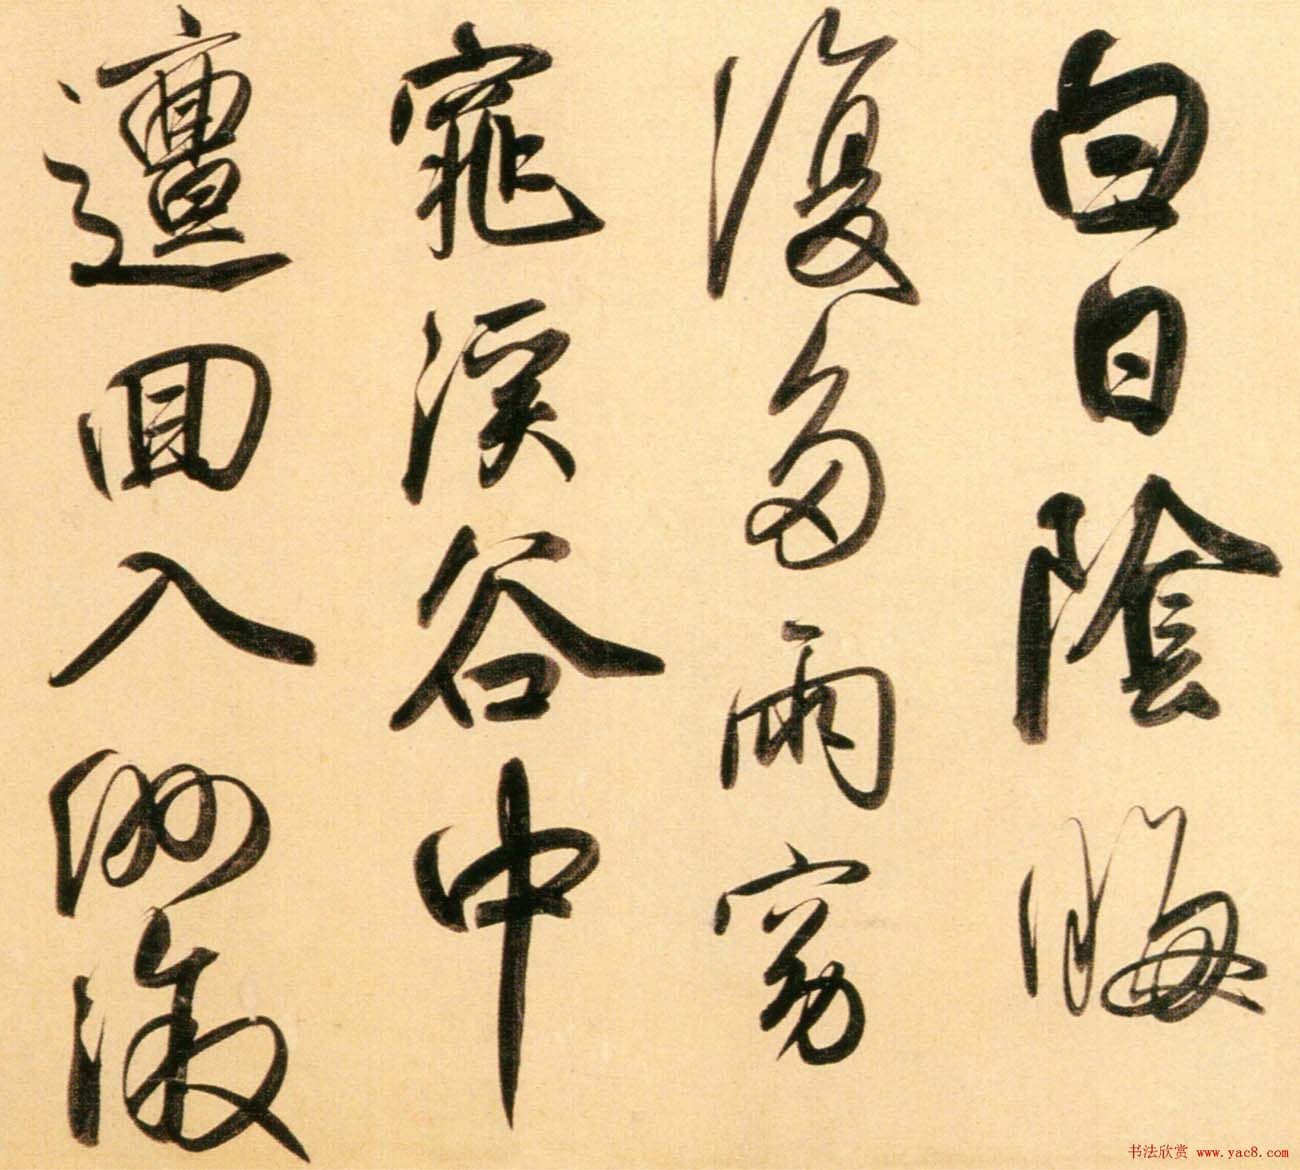 白日陰晦
復多雨窈
窕溪谷中
邅回入洲漵
书法欣赏 www.yac8.com